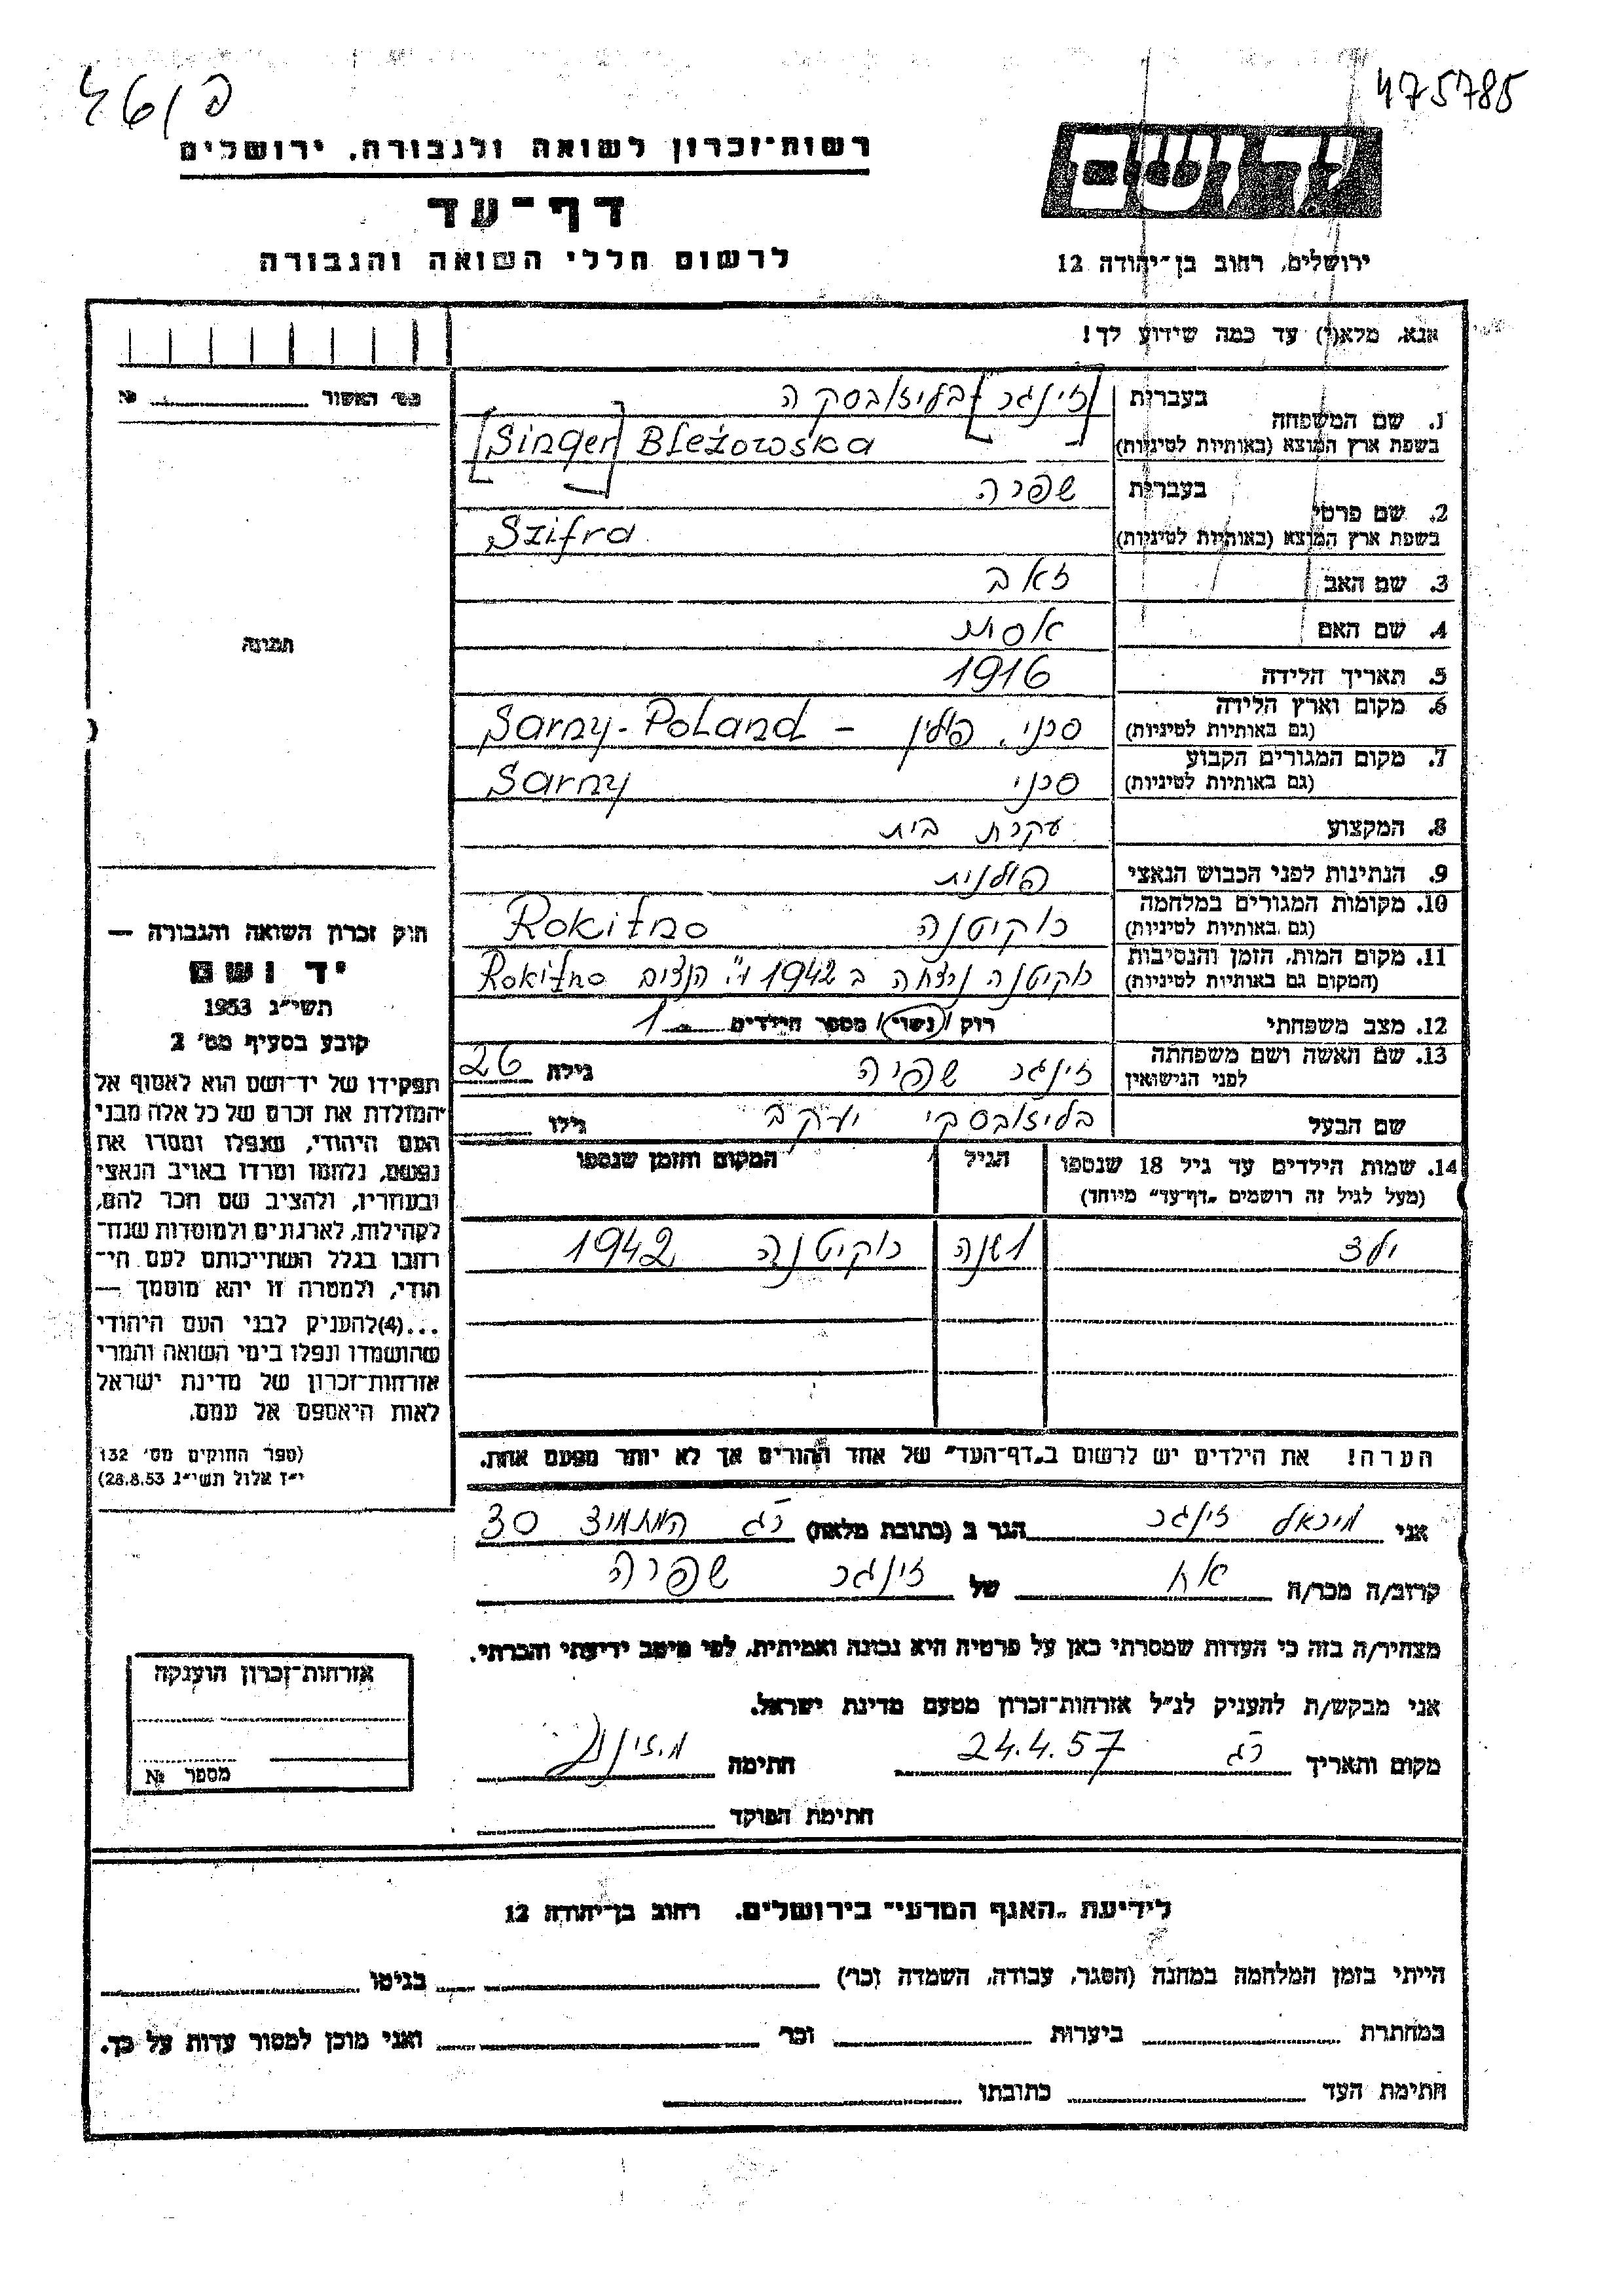 475785
רשות־זכרון לשואה ולגבורה, ירושלים
דף־עד
לרשום חללי השואה והגבורה
יד ושם
ירושלים, רחוב בן־יהודה 12
אנא, מלא(י) עד כמה שידוע לך!
מס' האשור №
תמונה
1. שם המשפחה
בעברית [זינגר] בליז'ובסקה
בשפת ארץ המוצא (באותיות לטיניות) [Singer] Bleżowska
2. שם פרטי
בעברית שפרה
בשפת ארץ המוצא (באותיות לטיניות) Szifra
3. שם האב זאב
4. שם האם אסנת
5. תאריך הלידה 1916
6. מקום וארץ הלידה
(גם באותיות לטיניות) סרני, פולין – Sarny-Poland
7. מקום המגורים הקבוע
(גם באותיות לטיניות) סרני Sarny
8. המקצוע עקרת בית
9. הנתינות לפני הכבוש הנאצי פולנית
10. מקומות המגורים במלחמה
(גם באותיות לטיניות) רוקיטנה Rokitno
11. מקום המות, הזמן והנסיבות
(המקום גם באותיות לטיניות) רוקיטנה נרצחה ב 1942 ע"י הנצים Rokitno
12. מצב משפחתי רוק / נשוי / מספר הילדים 1
13. שם האשה ושם משפחתה
לפני הנישואין זינגר שפרה גילה 26
שם הבעל בליז'ובסקי יעקב גילו
14. שמות הילדים עד גיל 18 שנספו הגיל המקום והזמן שנספו
(מעל לגיל זה רושמים „דף־עד" מיוחד)
ילד 1 שנה רוקיטנה 1942
הערה! את הילדים יש לרשום ב„דף־העד" של אחד ההורים אך לא יותר מפעם אחת.
חוק זכרון השואה והגבורה —
יד ושם
תשי"ג 1953
קובע בסעיף מס' 2
תפקידו של יד־ושם הוא לאסוף אל
המולדת את זכרם של כל אלה מבני
העם היהודי, שנפלו ומסרו את
נפשם, נלחמו ומרדו באויב הנאצי
ובעוזריו, ולהציב שם וזכר להם,
לקהילות, לארגונים ולמוסדות שנח־
רבו בגלל השתייכותם לעם הי־
הודי, ולמטרה זו יהא מוסמך —
...(4) להעניק לבני העם היהודי
שהושמדו ונפלו בימי השואה והמרי
אזרחות־זכרון של מדינת ישראל
לאות היאספם אל עמם.
(ספר החוקים מס' 132
י"ז אלול תשי"ג 28.8.53)
אני מיכאל זינגר הגר ב (כתובת מלאה) רג המתמיד 30
קרוב/ה מכר/ה אח של זינגר שפרה
מצהיר/ה בזה כי העדות שמסרתי כאן על פרטיה היא נכונה ואמיתית, לפי מיטב ידיעתי והכרתי.
אני מבקש/ת להעניק לנ"ל אזרחות־זכרון מטעם מדינת ישראל.
מקום ותאריך רג 24.4.57 חתימה
חתימת הפוקד
אזרחות־זכרון הוענקה
מספר №
לידיעת „האגף המדעי" בירושלים. רחוב בן־יהודה 12
הייתי בזמן המלחמה במחנה (הסגר, עבודה, השמדה וכר') בגיטו
במחתרת ביערות וכר' ואני מוכן למסור עדות על כך.
חתימת העד כתובתו